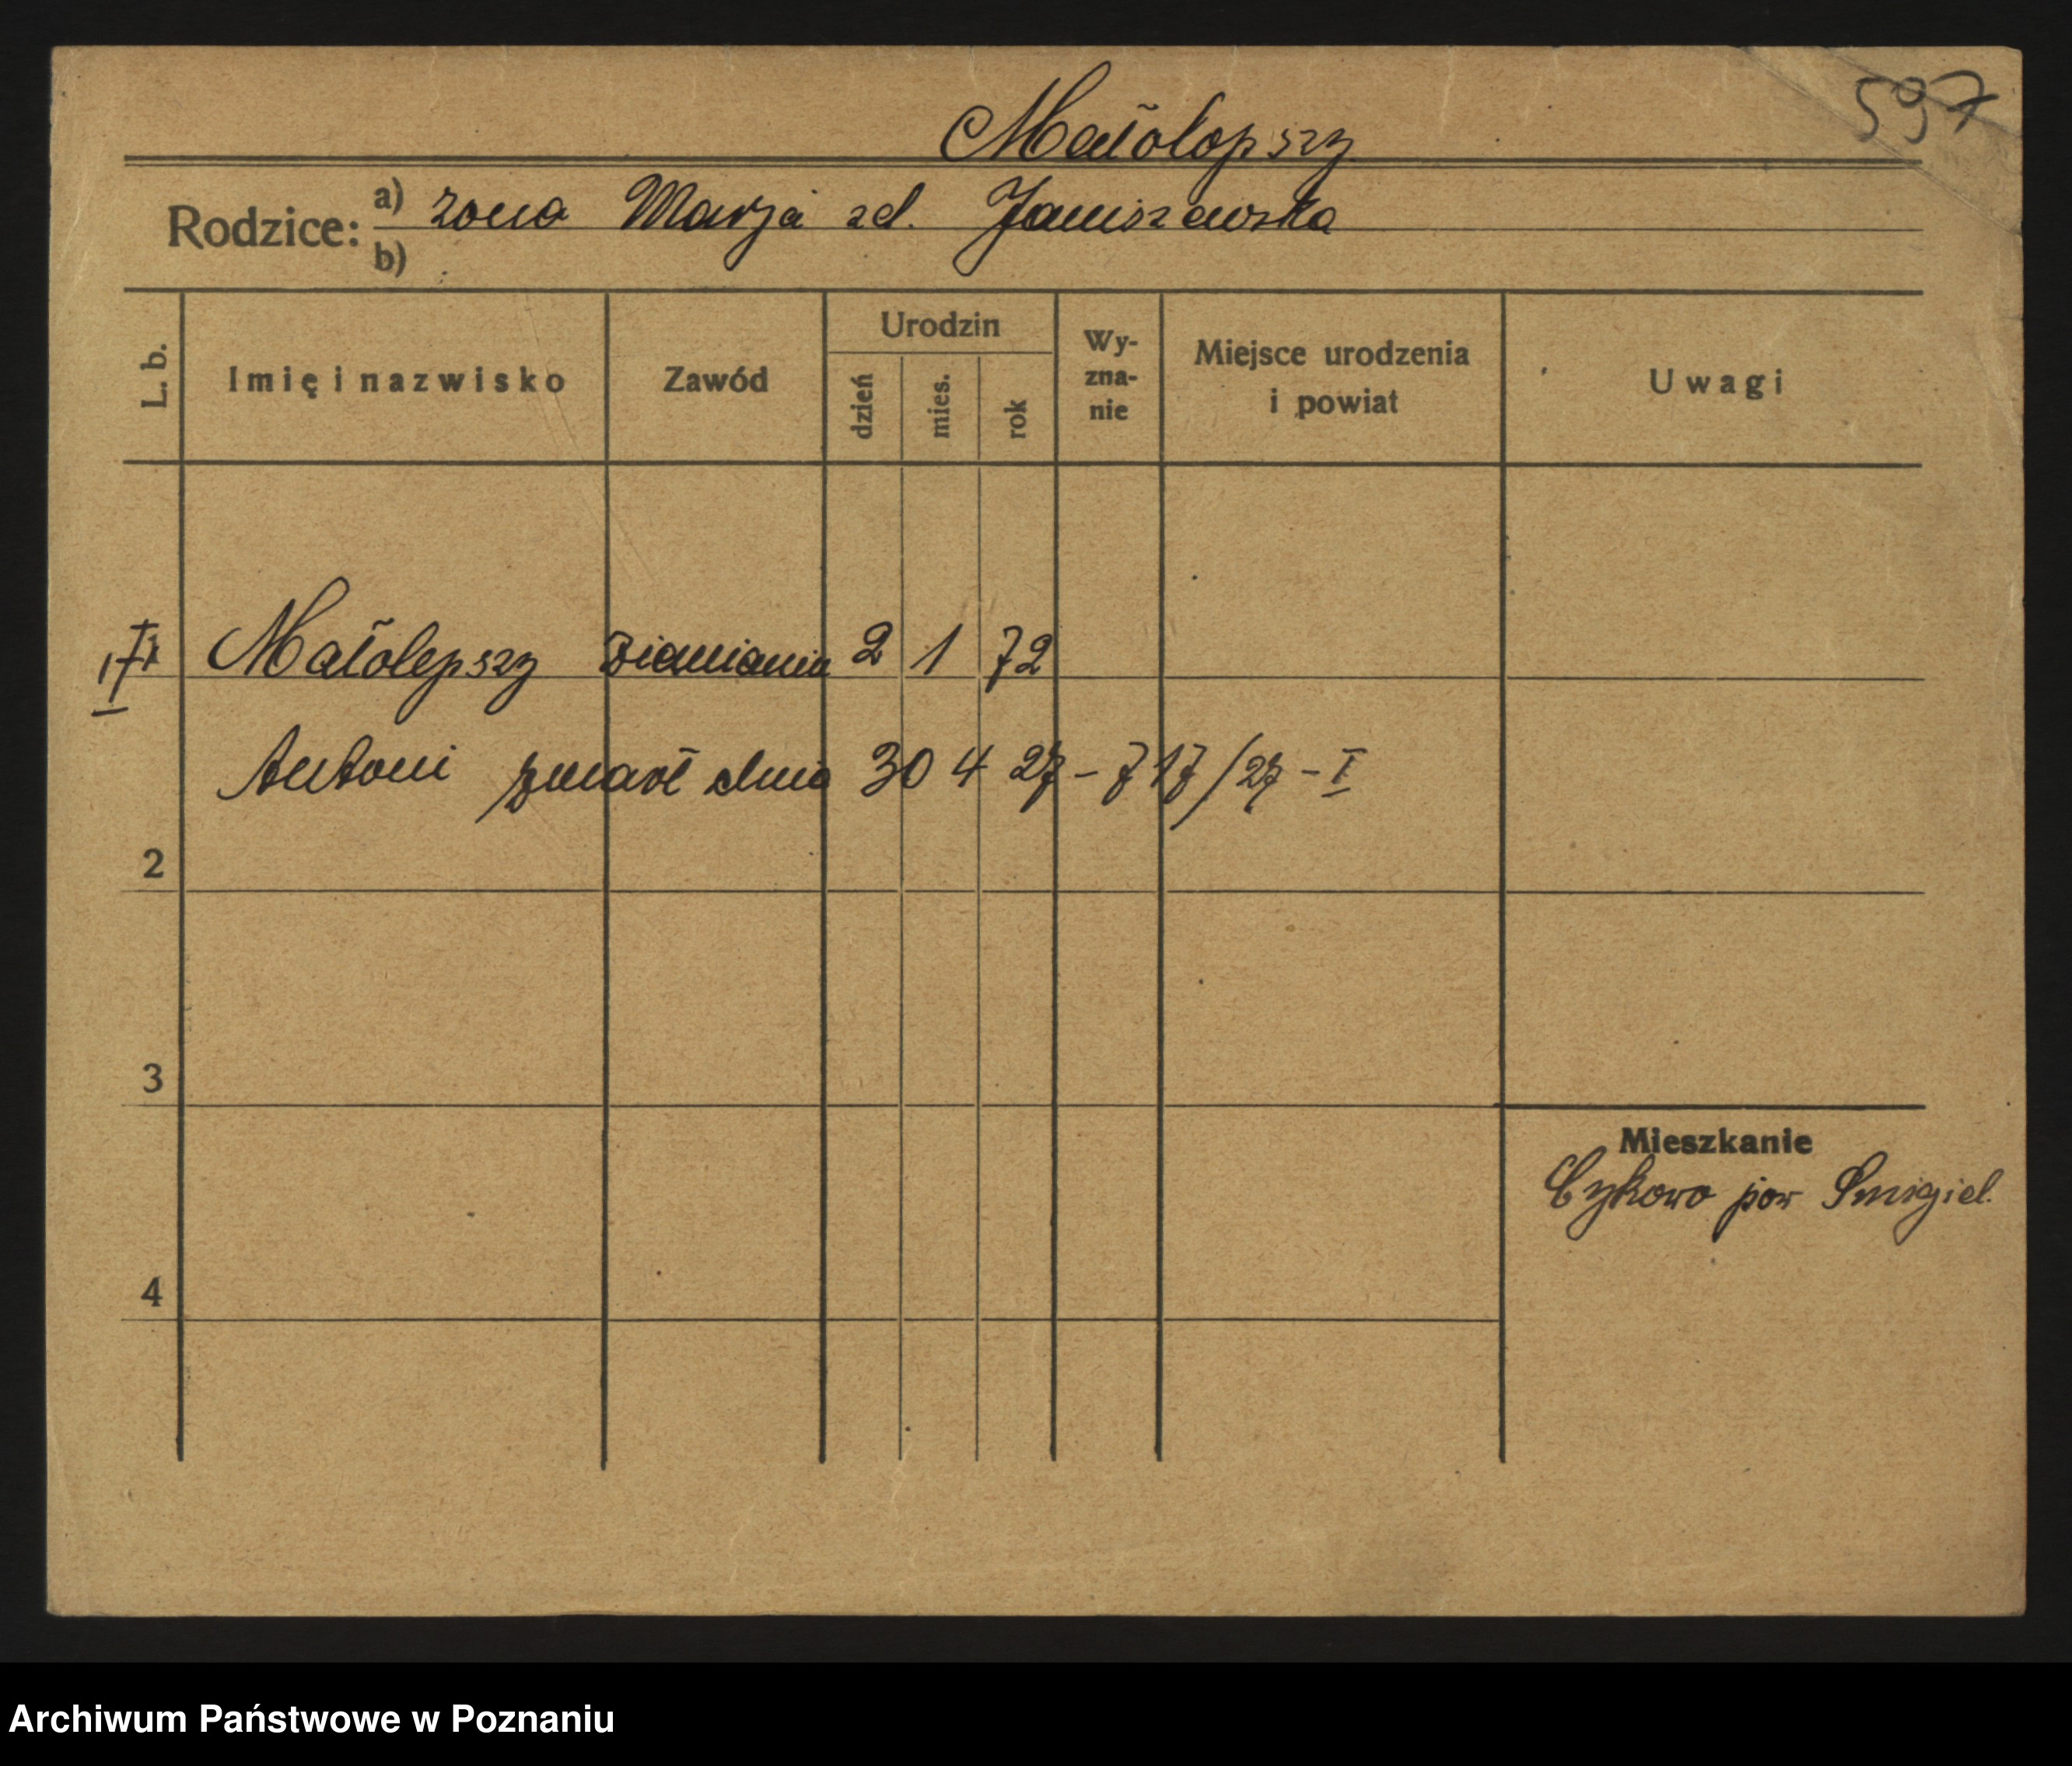 597
Małolepszy
Rodzice: a) zona Marja zd. Janiszewska
b)
L. b. Imię i nazwisko Zawód Urodzin dzień mies. rok Wy-zna-nie Miejsce urodzenia i powiat Uwagi
Małolepszy 2 1 72
Antoni zmarł dnia 30 4 27 - 717/27 - I
2
3
Mieszkanie
Cykowo pow Smigiel.
4
Archiwum Państwowe w Poznaniu